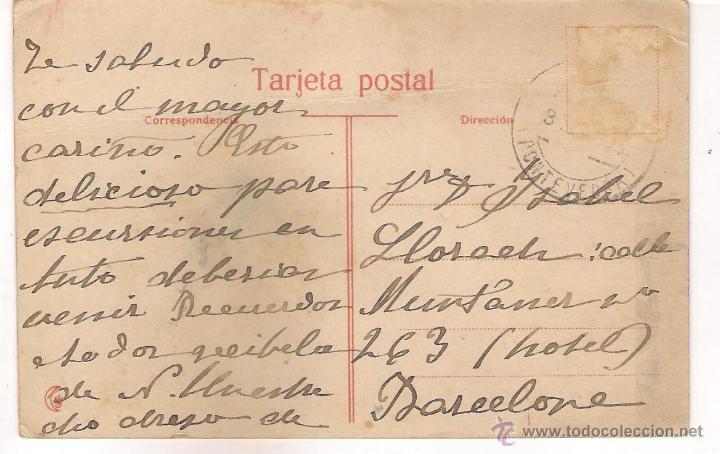 Tarjeta postal
Correspondencia
Dirección
PONTEVEDRA
Te saludo
con el mayor
cariño. Esto
delicioso para
escursiones en
Auto deberias
venir Recuerdos
a todos recibela
de N.
Isabel
Llorach calle
Muntaner nº
263 (hotel)
Barcelona
© todocoleccion.net
www.todocoleccion.net